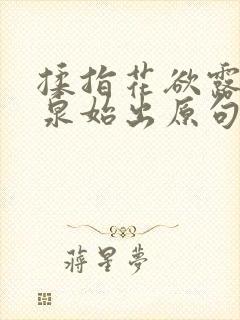 揉指花欲露
泉始出原句
蒋星夢